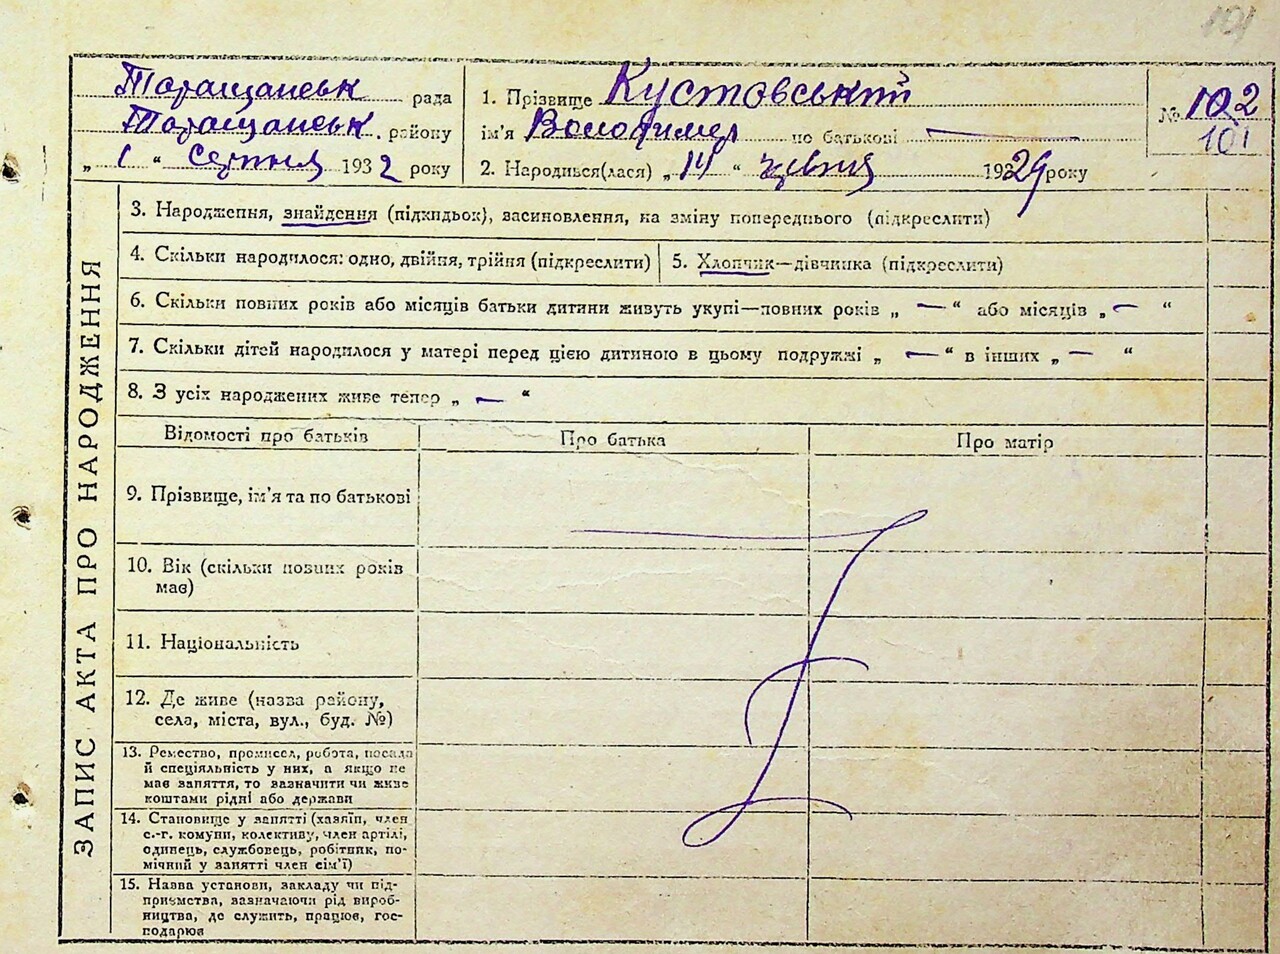 101
Таращанськ рада
Таращанськ. району
„ 1 “ серпня 1932 року
1. Прізвище Кустовський
ім'я Володимер по батькові —
2. Народився(лася) „ 14 “ 1929 року
№ 102
101
ЗАПИС АКТА ПРО НАРОДЖЕННЯ
3. Народження, знайдення (підкидьок), засиновлення, на зміну попереднього (підкреслити)
4. Скільки народилося: одно, двійня, трійня (підкреслити)
5. Хлопчик—дівчинка (підкреслити)
6. Скільки повних років або місяців батьки дитини живуть укупі—повних років „ — “ або місяців „ — “
7. Скільки дітей народилося у матері перед цією дитиною в цьому подружжі „ — “ в інших „ — “
8. З усіх народжених живе тепер „ — “
Відомості про батьків
Про батька
Про матір
9. Прізвище, ім'я та по батькові
10. Вік (скільки повних років
має)
11. Національність
12. Де живе (назва району,
села, міста, вул., буд. №)
13. Ремество, промисел, робота, посада
й спеціяльність у них, а якщо не
має заняття, то зазначити чи живе
коштами рідні або держави
14. Становище у занятті (хазяїн, член
с.-г. комуни, колективу, член артілі,
одинець, службовець, робітник, по-
мічний у занятті член сім'ї)
15. Назва установи, закладу чи під-
приємства, зазначаючи рід вироб-
ництва, де служить, працює, гос-
подарює